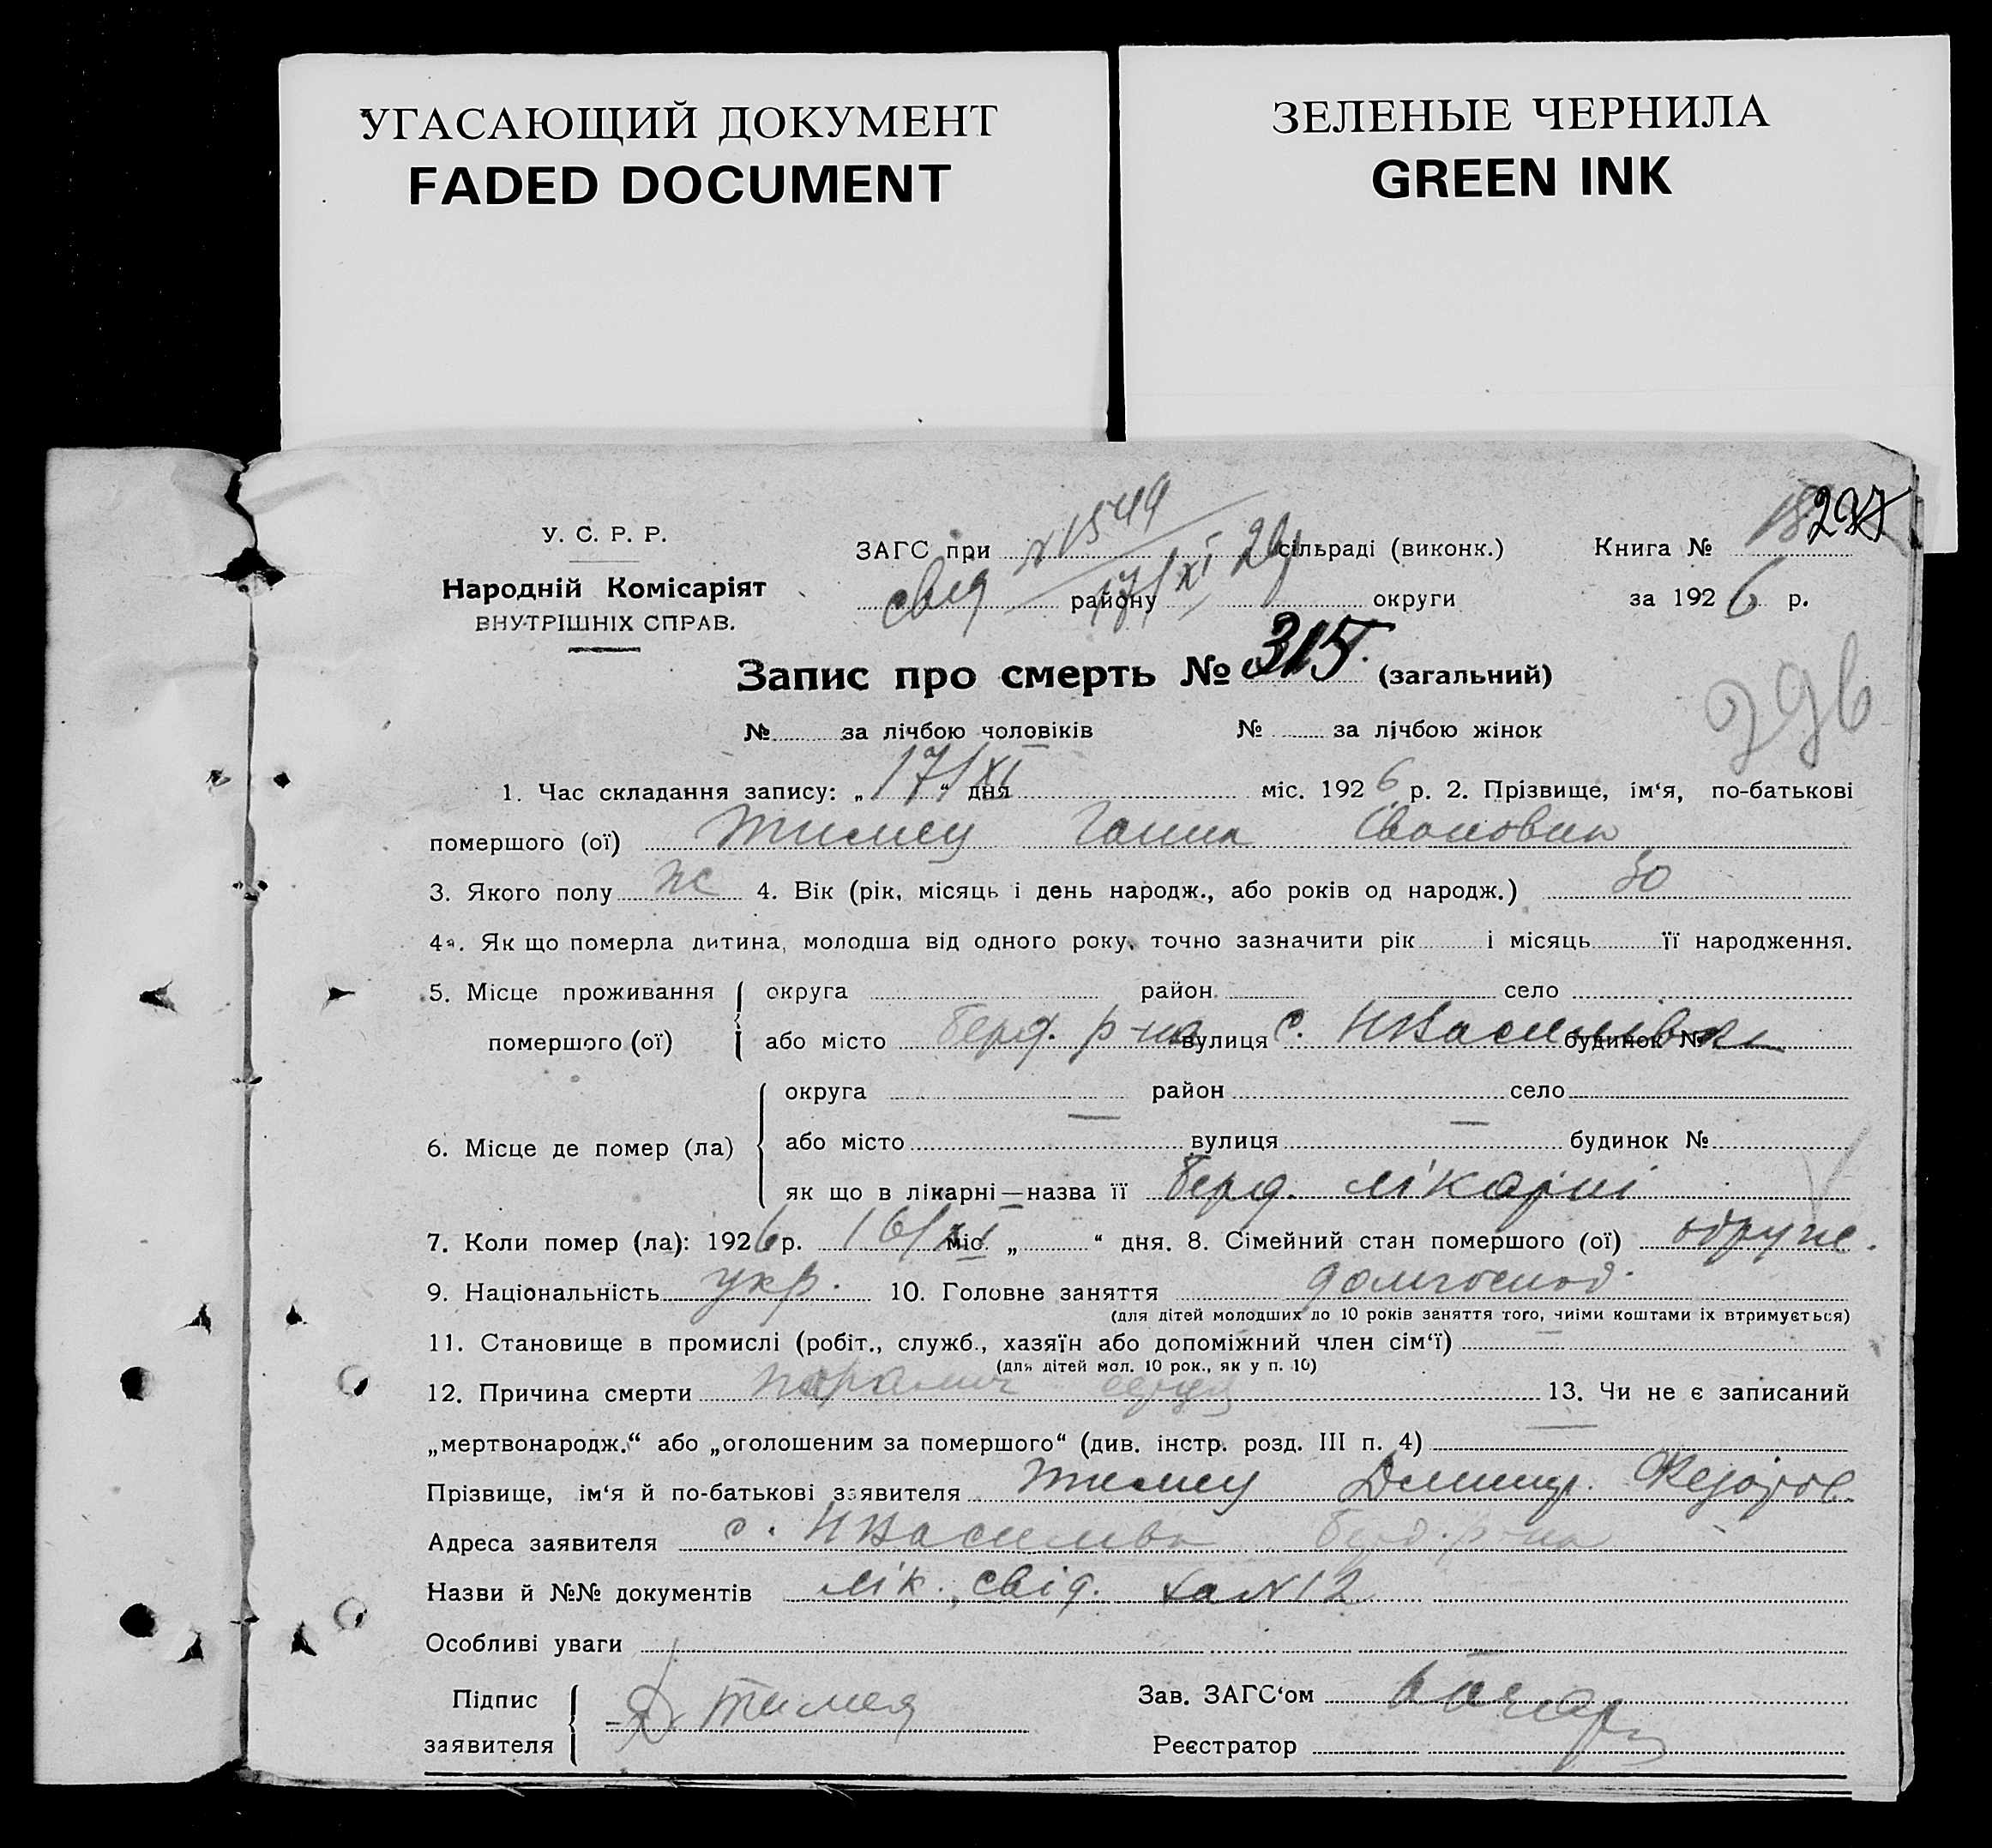 УГАСАЮЩИЙ ДОКУМЕНТ
FADED DOCUMENT
ЗЕЛЕНЫЕ ЧЕРНИЛА
GREEN INK
У. С. Р. Р.
Народній Комісаріят
ВНУТРІШНІХ СПРАВ.
ЗАГС при № 1549 сільраді (виконк.)
свід району 17/XI 26 округи
Книга № 297
за 1926 р.
Запис про смерть № 315. (загальний)
296
№ за лічбою чоловіків № за лічбою жінок
1. Час складання запису: „ 17/XI “ дня міс. 1926 р. 2. Прізвище, ім‘я, по-батькові
помершого (ої) Тимец Ганна Івановна
3. Якого полу ж 4. Вік (рік, місяць і день народж., або років од народж.) 30
4а. Як що померла дитина, молодша від одного року, точно зазначити рік і місяць її народження.
5. Місце проживання помершого (ої) округа район село
або місто Берд. р-на вулиця с. НВасилівка будинок №
6. Місце де помер (ла) округа район село
або місто — вулиця — будинок №
як що в лікарні—назва її Берд. лікарні
7. Коли помер (ла): 1926 р. 16/XI міс. „ “ дня. 8. Сімейний стан помершого (ої) одруж.
9. Національність укр. 10. Головне заняття домгоспод.
(для дітей молодших до 10 років заняття того, чиїми коштами їх втримується)
11. Становище в промислі (робіт., служб., хазяїн або допоміжний член сім‘ї) —
(для дітей мол. 10 рок., як у п. 10)
12. Причина смерти параліч серця 13. Чи не є записаний
„мертвонародж.“ або „оголошеним за помершого“ (див. інстр. розд. III п. 4) —
Прізвище, ім‘я й по-батькові заявителя Тимец Дмитр. Федоров.
Адреса заявителя с. НВасилівка Берд. р-на
Назви й №№ документів лік. свід. за № 12
Особливі уваги
Підпис заявителя Д Тимец
Зав. ЗАГС‘ом
Реєстратор